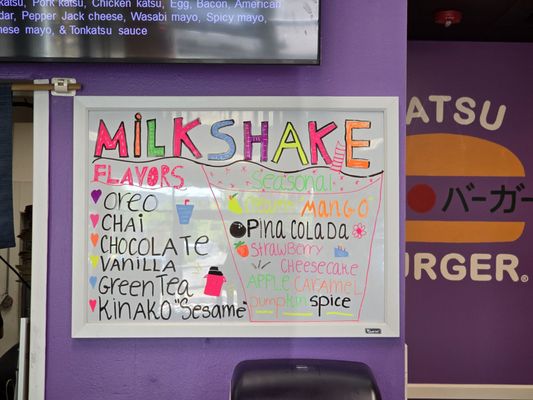 katsu, Pork katsu, Chicken katsu, Egg, Bacon, American,
dar, Pepper Jack cheese, Wasabi mayo, Spicy mayo,
nese mayo, & Tonkatsu sauce
MILKSHAKE
FLAVORS
OREO
CHAI
CHOCOLATE
VANILLA
GREEN TEA
KINAKO "Sesame"
Seasonal
MANGO
PINA COLADA
STRAWBERRY
CHEESECAKE
APPLE CARAMEL
pumpkin spice
ATSU
バーガー
URGER®